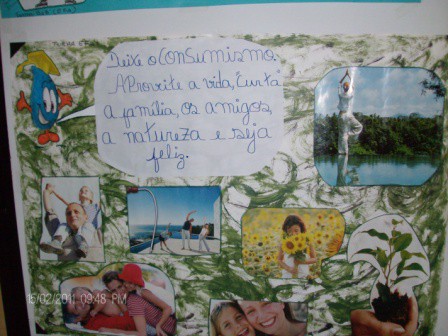 Deixe o consumismo.
Aproveite a vida, "curta"
a família, os amigos,
a natureza e seja
feliz.
15/02/2011 09:48 PM